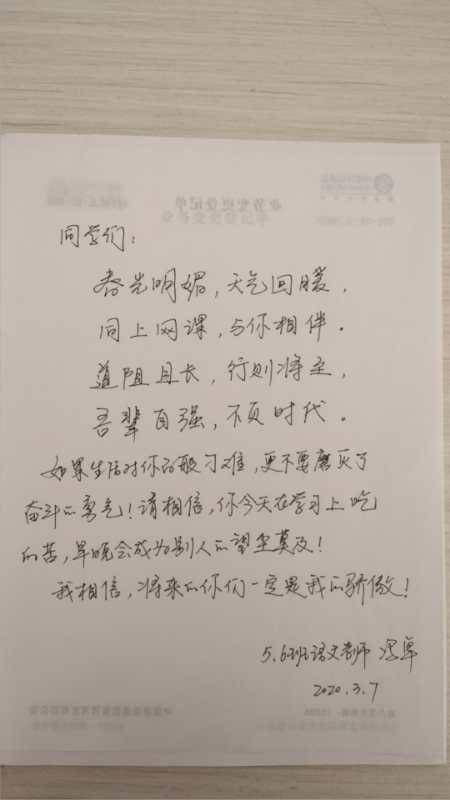 同学们：
春光明媚，天气回暖，
同上网课，与你相伴。
道阻且长，行则将至，
吾辈自强，不负时代。
如果生活对你百般刁难，更不要磨灭了
奋斗的勇气！请相信，你今天在学习上吃
的苦，早晚会成为别人的望尘莫及！
我相信，将来的你们一定是我的骄傲！
5.6班语文老师
2020.3.7